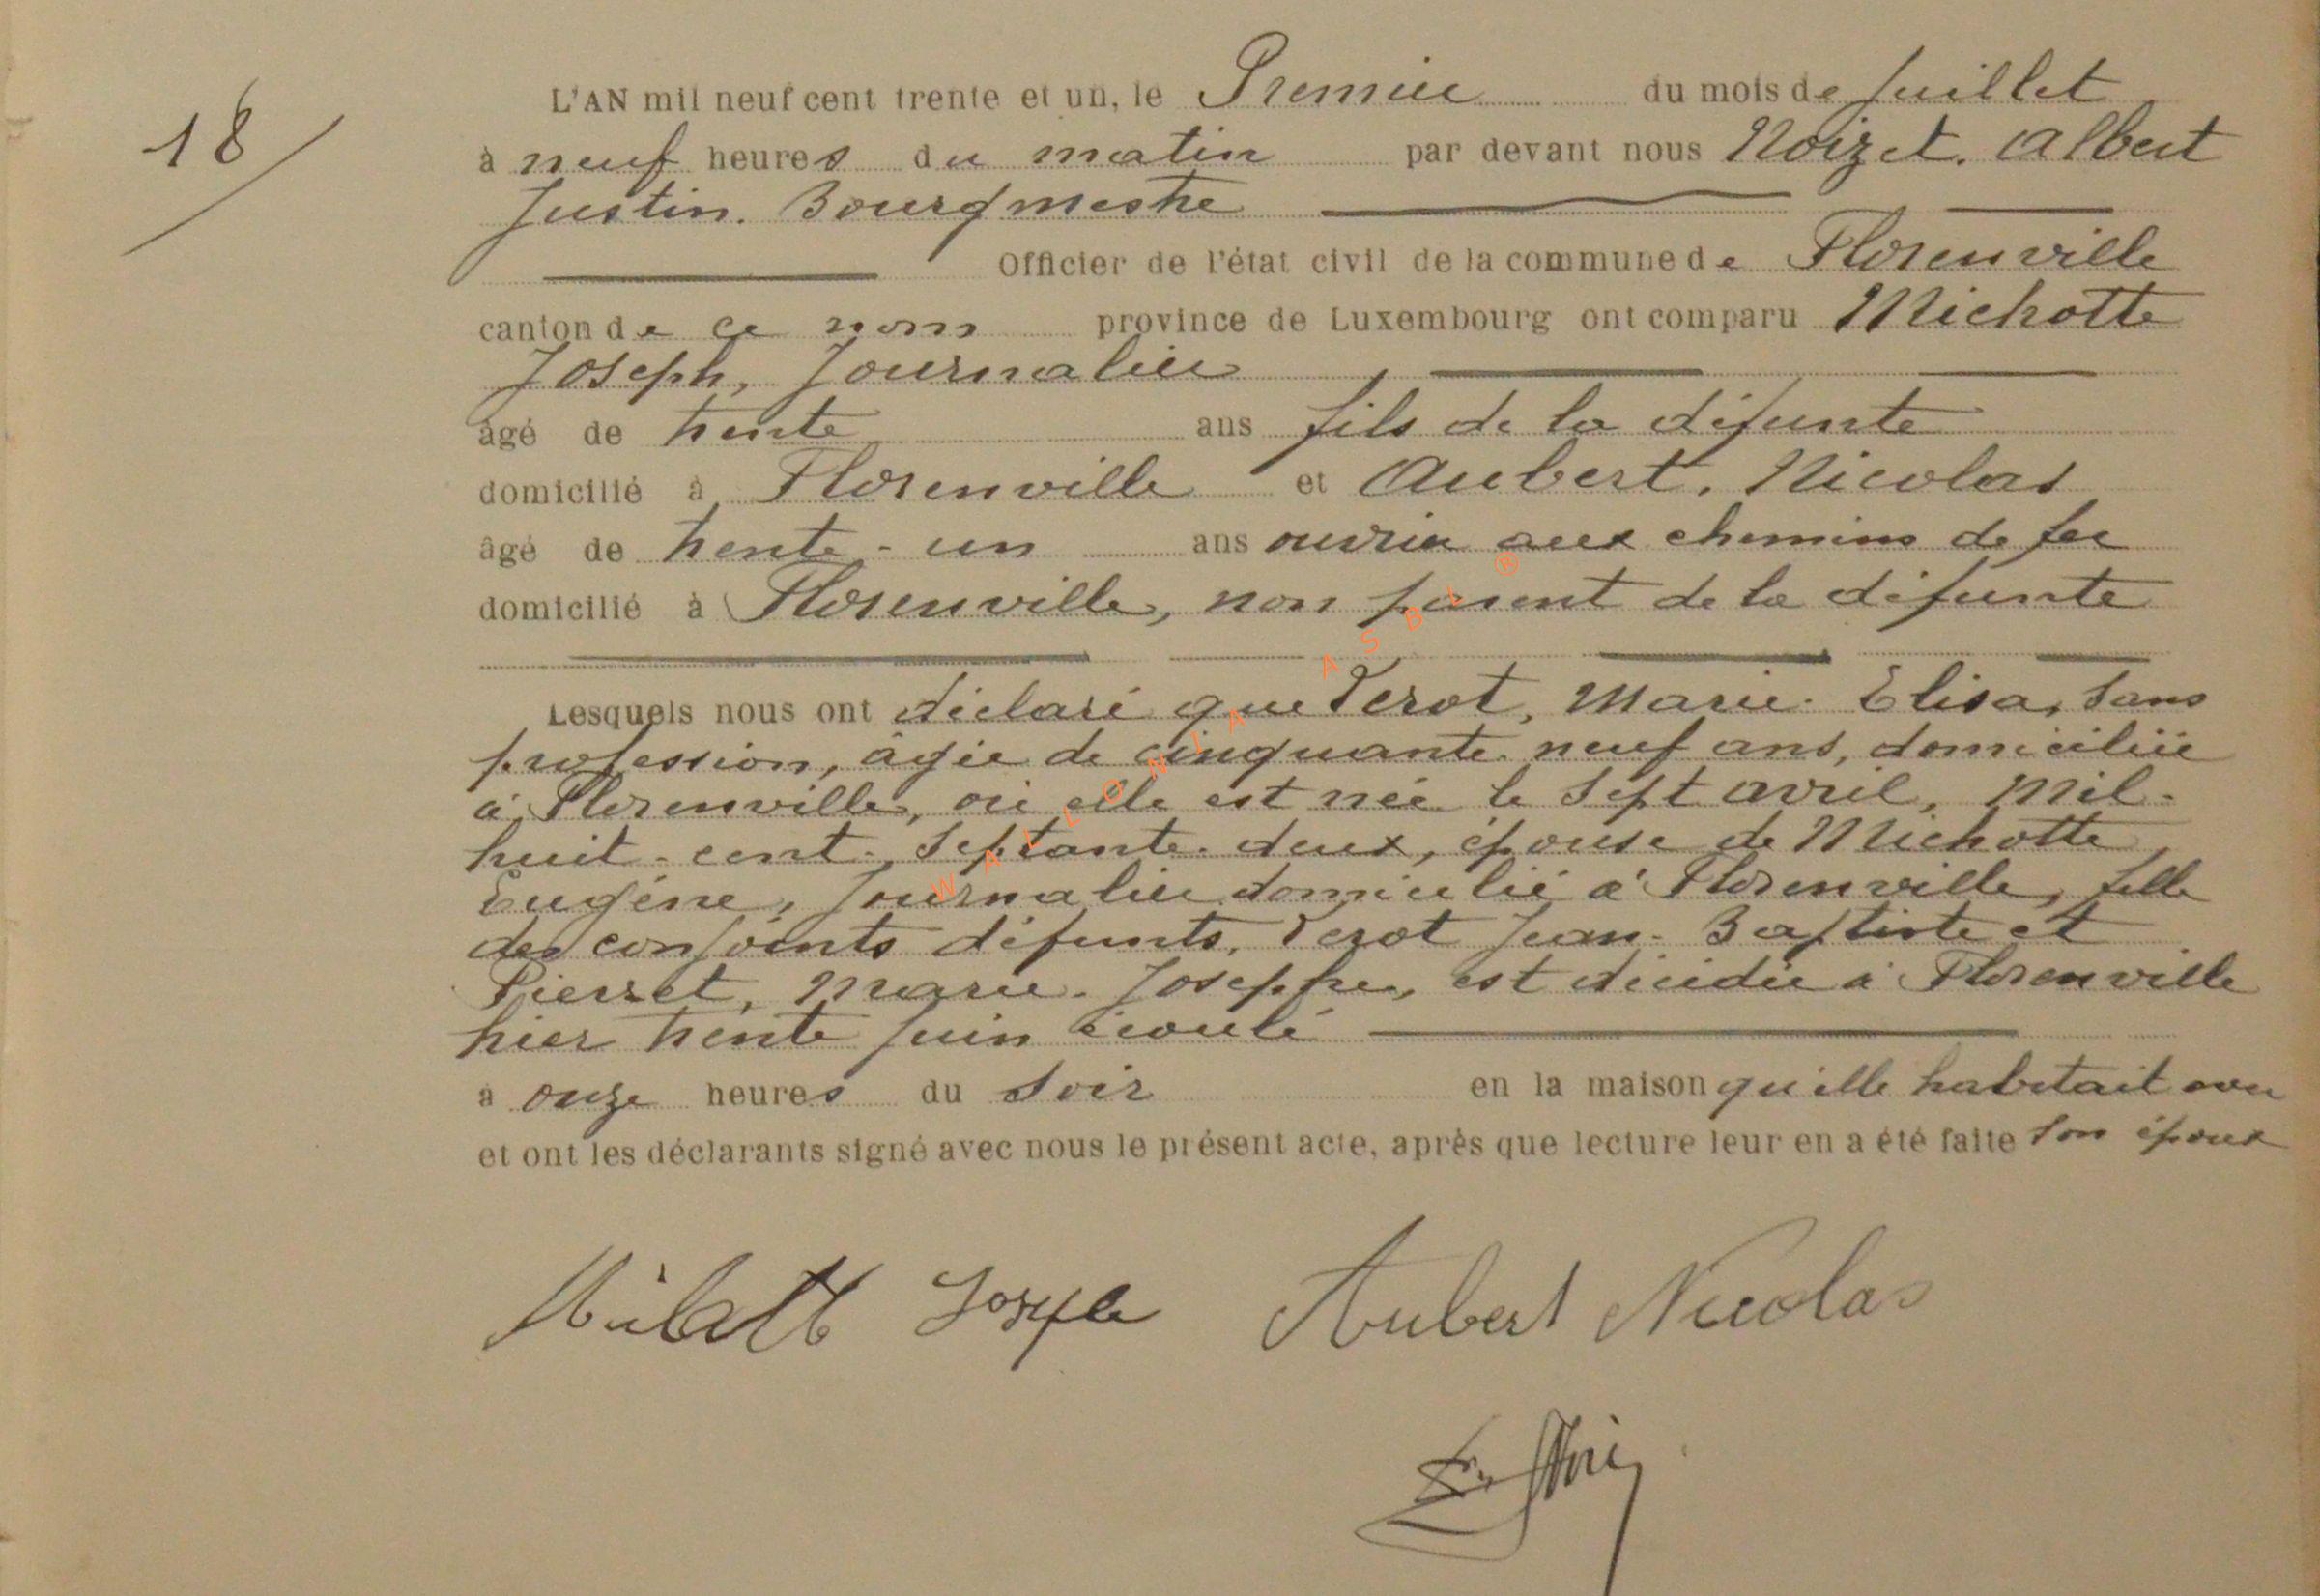 18
L'AN mil neuf cent trente et un, le Premier du mois de Juillet
à neuf heures du matin par devant nous Noizet. Albert
Justin. Bourgmestre
Officier de l'état civil de la commune de Florenville
canton de ce nom province de Luxembourg ont comparu Michotte
Joseph, Journalier
âgé de trente ans fils de la défunte
domicilié à Florenville et Aubert. Nicolas
âgé de trente-un ans ouvrier aux chemins de fer
domicilié à Florenville, non parent de la défunte
Lesquels nous ont déclaré que Perot, Marie-Elisa, sans
profession, âgée de cinquante neuf ans, domiciliée
à Florenville, où elle est née le sept avril, mil-
huit-cent-septante-deux, épouse de Michotte
Eugène, Journalier domicilié à Florenville, fille
des conjoints défunts, Perot Jean-Baptiste et
Pierret, Marie-Josephe, est décédée à Florenville
hier trente juin écoulé
à onze heures du soir en la maison qu'elle habitait avec
et ont les déclarants signé avec nous le présent acte, après que lecture leur en a été faite son époux
WALLONIA ASBL ®
Michotte Joseph Aubert Nicolas